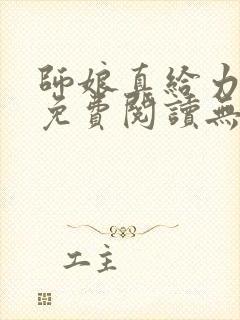 師娘直給力
免費閱讀無
工主